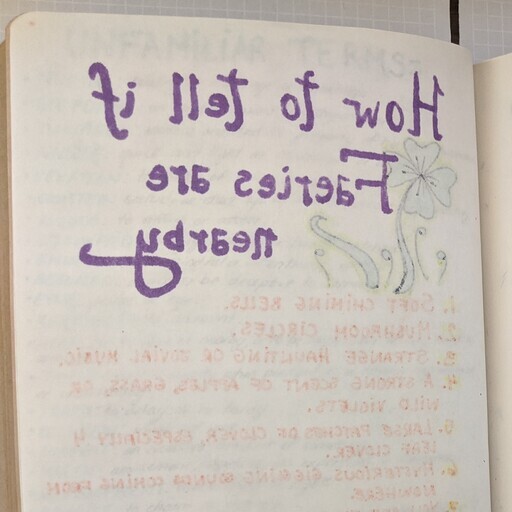 UNFAMILIAR TERMS-
How to tell if
Faeries are
nearby
1. SOFT CHIMING BELLS.
2. MUSHROOM CIRCLES.
3. STRANGE HAUNTING OR JOVIAL MUSIC.
4. A STRONG SCENT OF APPLES, GRASS, OR
WILD VIOLETS.
5. LARGE PATCHES OF CLOVER, ESPECIALLY 4
LEAF CLOVER.
6. MYSTERIOUS SINGING SOUNDS COMING FROM
NOWHERE.
7.